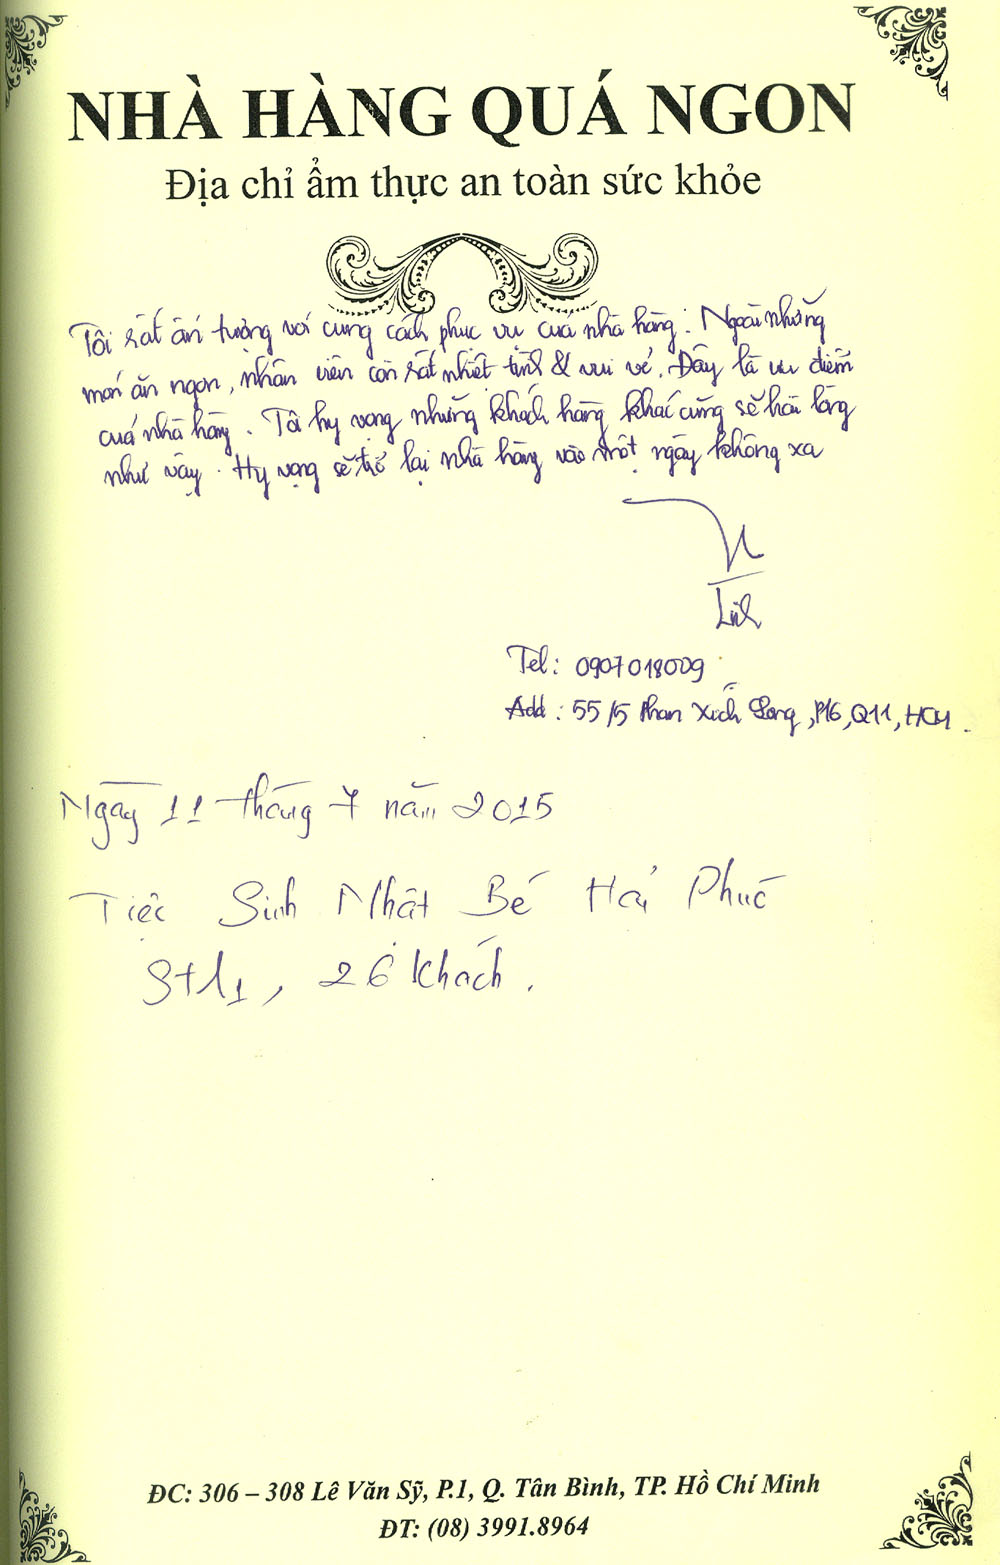 NHÀ HÀNG QUÁ NGON
Địa chỉ ẩm thực an toàn sức khỏe
Tôi rất ấn tượng với cung cách phục vụ của nhà hàng. Ngoài những
món ăn ngon, nhân viên còn rất nhiệt tình & vui vẻ. Đây là ưu điểm
của nhà hàng. Tôi hy vọng những khách hàng khác cũng sẽ hài lòng
như vậy. Hy vọng sẽ trở lại nhà hàng vào một ngày không xa
Linh
Tel: 0907018009
Add: 55/5 Phan Xích Long, P16, Q11, HCM.
Ngày 11 tháng 7 năm 2015
Tiệc Sinh Nhật Bé Hải Phúc
26 khách.
ĐC: 306 – 308 Lê Văn Sỹ, P.1, Q. Tân Bình, TP. Hồ Chí Minh
ĐT: (08) 3991.8964